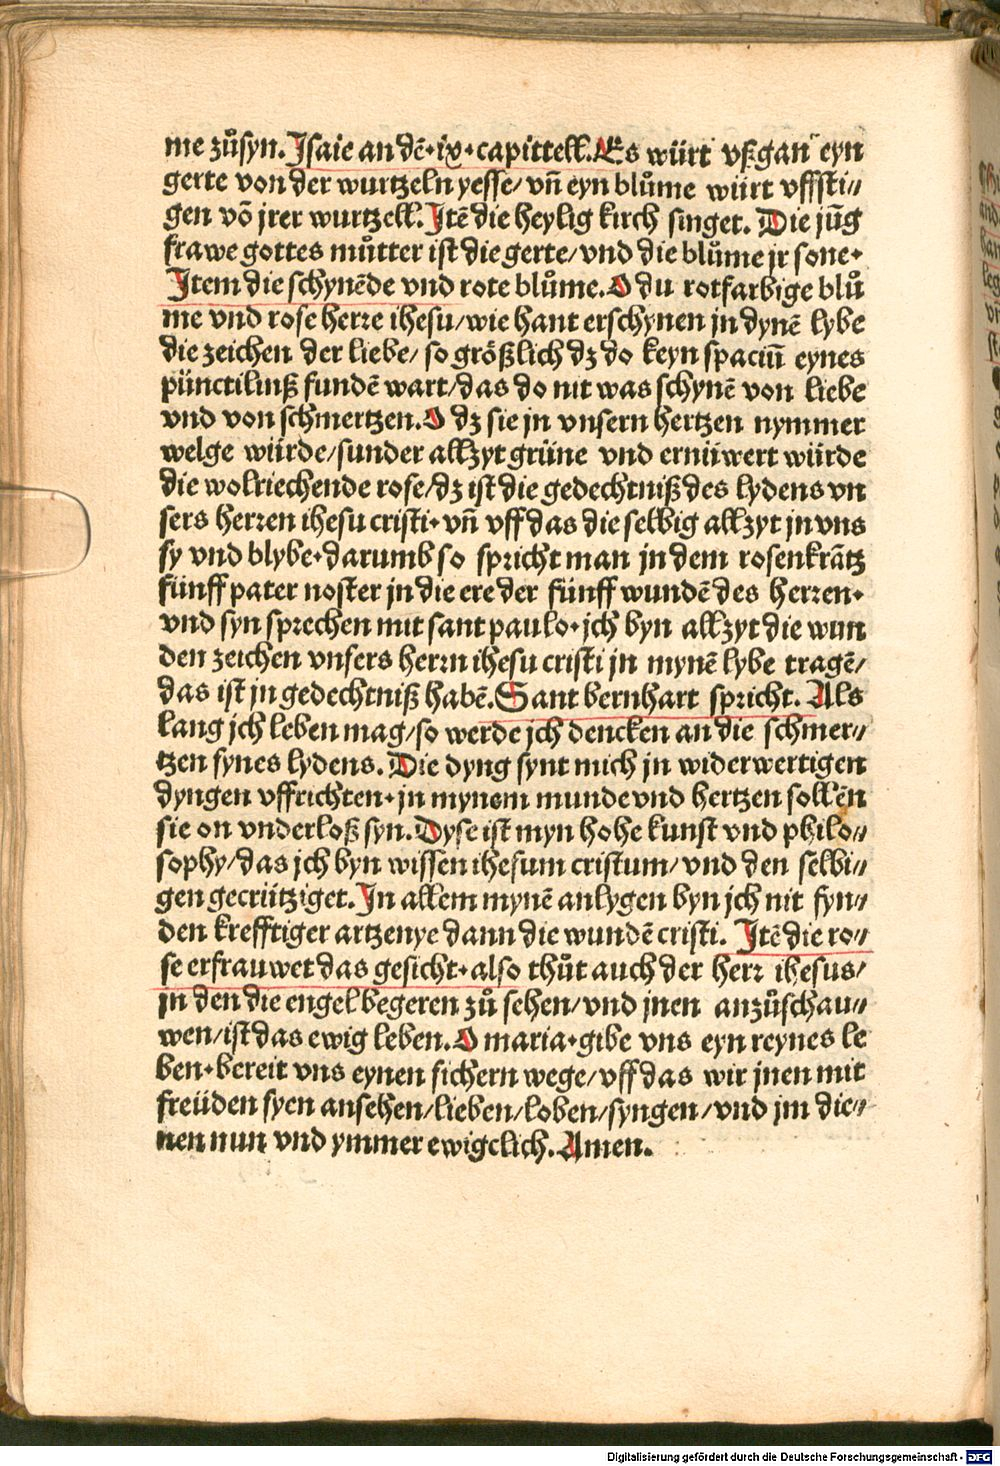 me zuͦsyn. Jsaie an dē·ix·capittell. Es würt vßgan eyn
gerte von der wurtzeln yesse/ vñ eyn bluͦme würt vffsti//
gen võ jrer wurtzell. Jtē die heylig kirch singet. Die jūg
frawe gottes muͦtter ist die gerte/ vnd die bluͦme jr sone·
Jtem die schynēde vnd rote bluͦme. O du rotfarbige bluͦ
me vnd rose herre ihesu/ wie hant erschynen jn dynē lybe
die zeichen der liebe/ so größlich dz do keyn spaciū eynes
pünctilinß fundē wart/ das do nit was schynē von liebe
vnd von schmertzen. O dz sie jn vnsern hertzen nymmer
welge würde/ sunder allzyt grüne vnd ernüwert würde
die wolriechende rose/ dz ist die gedechtniß des lydens vn
sers herren ihesu cristi· vñ vff das die selbig allzyt jn vns
sy vnd blybe· darumb so spricht man jn dem rosenkrātz
fünff pater noster jn die ere der fünff wundē des herren·
vnd syn sprechen mit sant paulo· jch byn allzyt die wun
den zeichen vnsers herrn ihesu cristi jn mynē lybe tragē/
das ist jn gedechtniß habē. Sant bernhart spricht. Als
lang jch leben mag/ so werde jch dencken an die schmer//
tzen synes lydens. Die dyng synt mich jn widerwertigen
dyngen vffrichten· jn mynem munde vnd hertzen sollēn
sie on vnderloß syn. Dyse ist myn hohe kunst vnd philo//
sophy/ das jch byn wissen ihesum cristum/ vnd den selbi//
gen gecrütziget. Jn allem mynē anlygen byn jch nit fyn//
den krefftiger artzenye dann die wundē cristi. Jtē die ro//
se erfrauwet das gesicht· also thuͦt auch der herr ihesus/
jn den die engel begeren zuͦ sehen/ vnd jnen anzuͦschau//
wen/ ist das ewig leben. O maria· gibe vns eyn reynes le
ben· bereit vns eynen sichern wege/ vff das wir jnen mit
freüden syen ansehen/ lieben/ loben/ syngen/ vnd jm die//
nen nun vnd ymmer ewigclich. Amen.
Digitalisierung gefördert durch die Deutsche Forschungsgemeinschaft - DFG